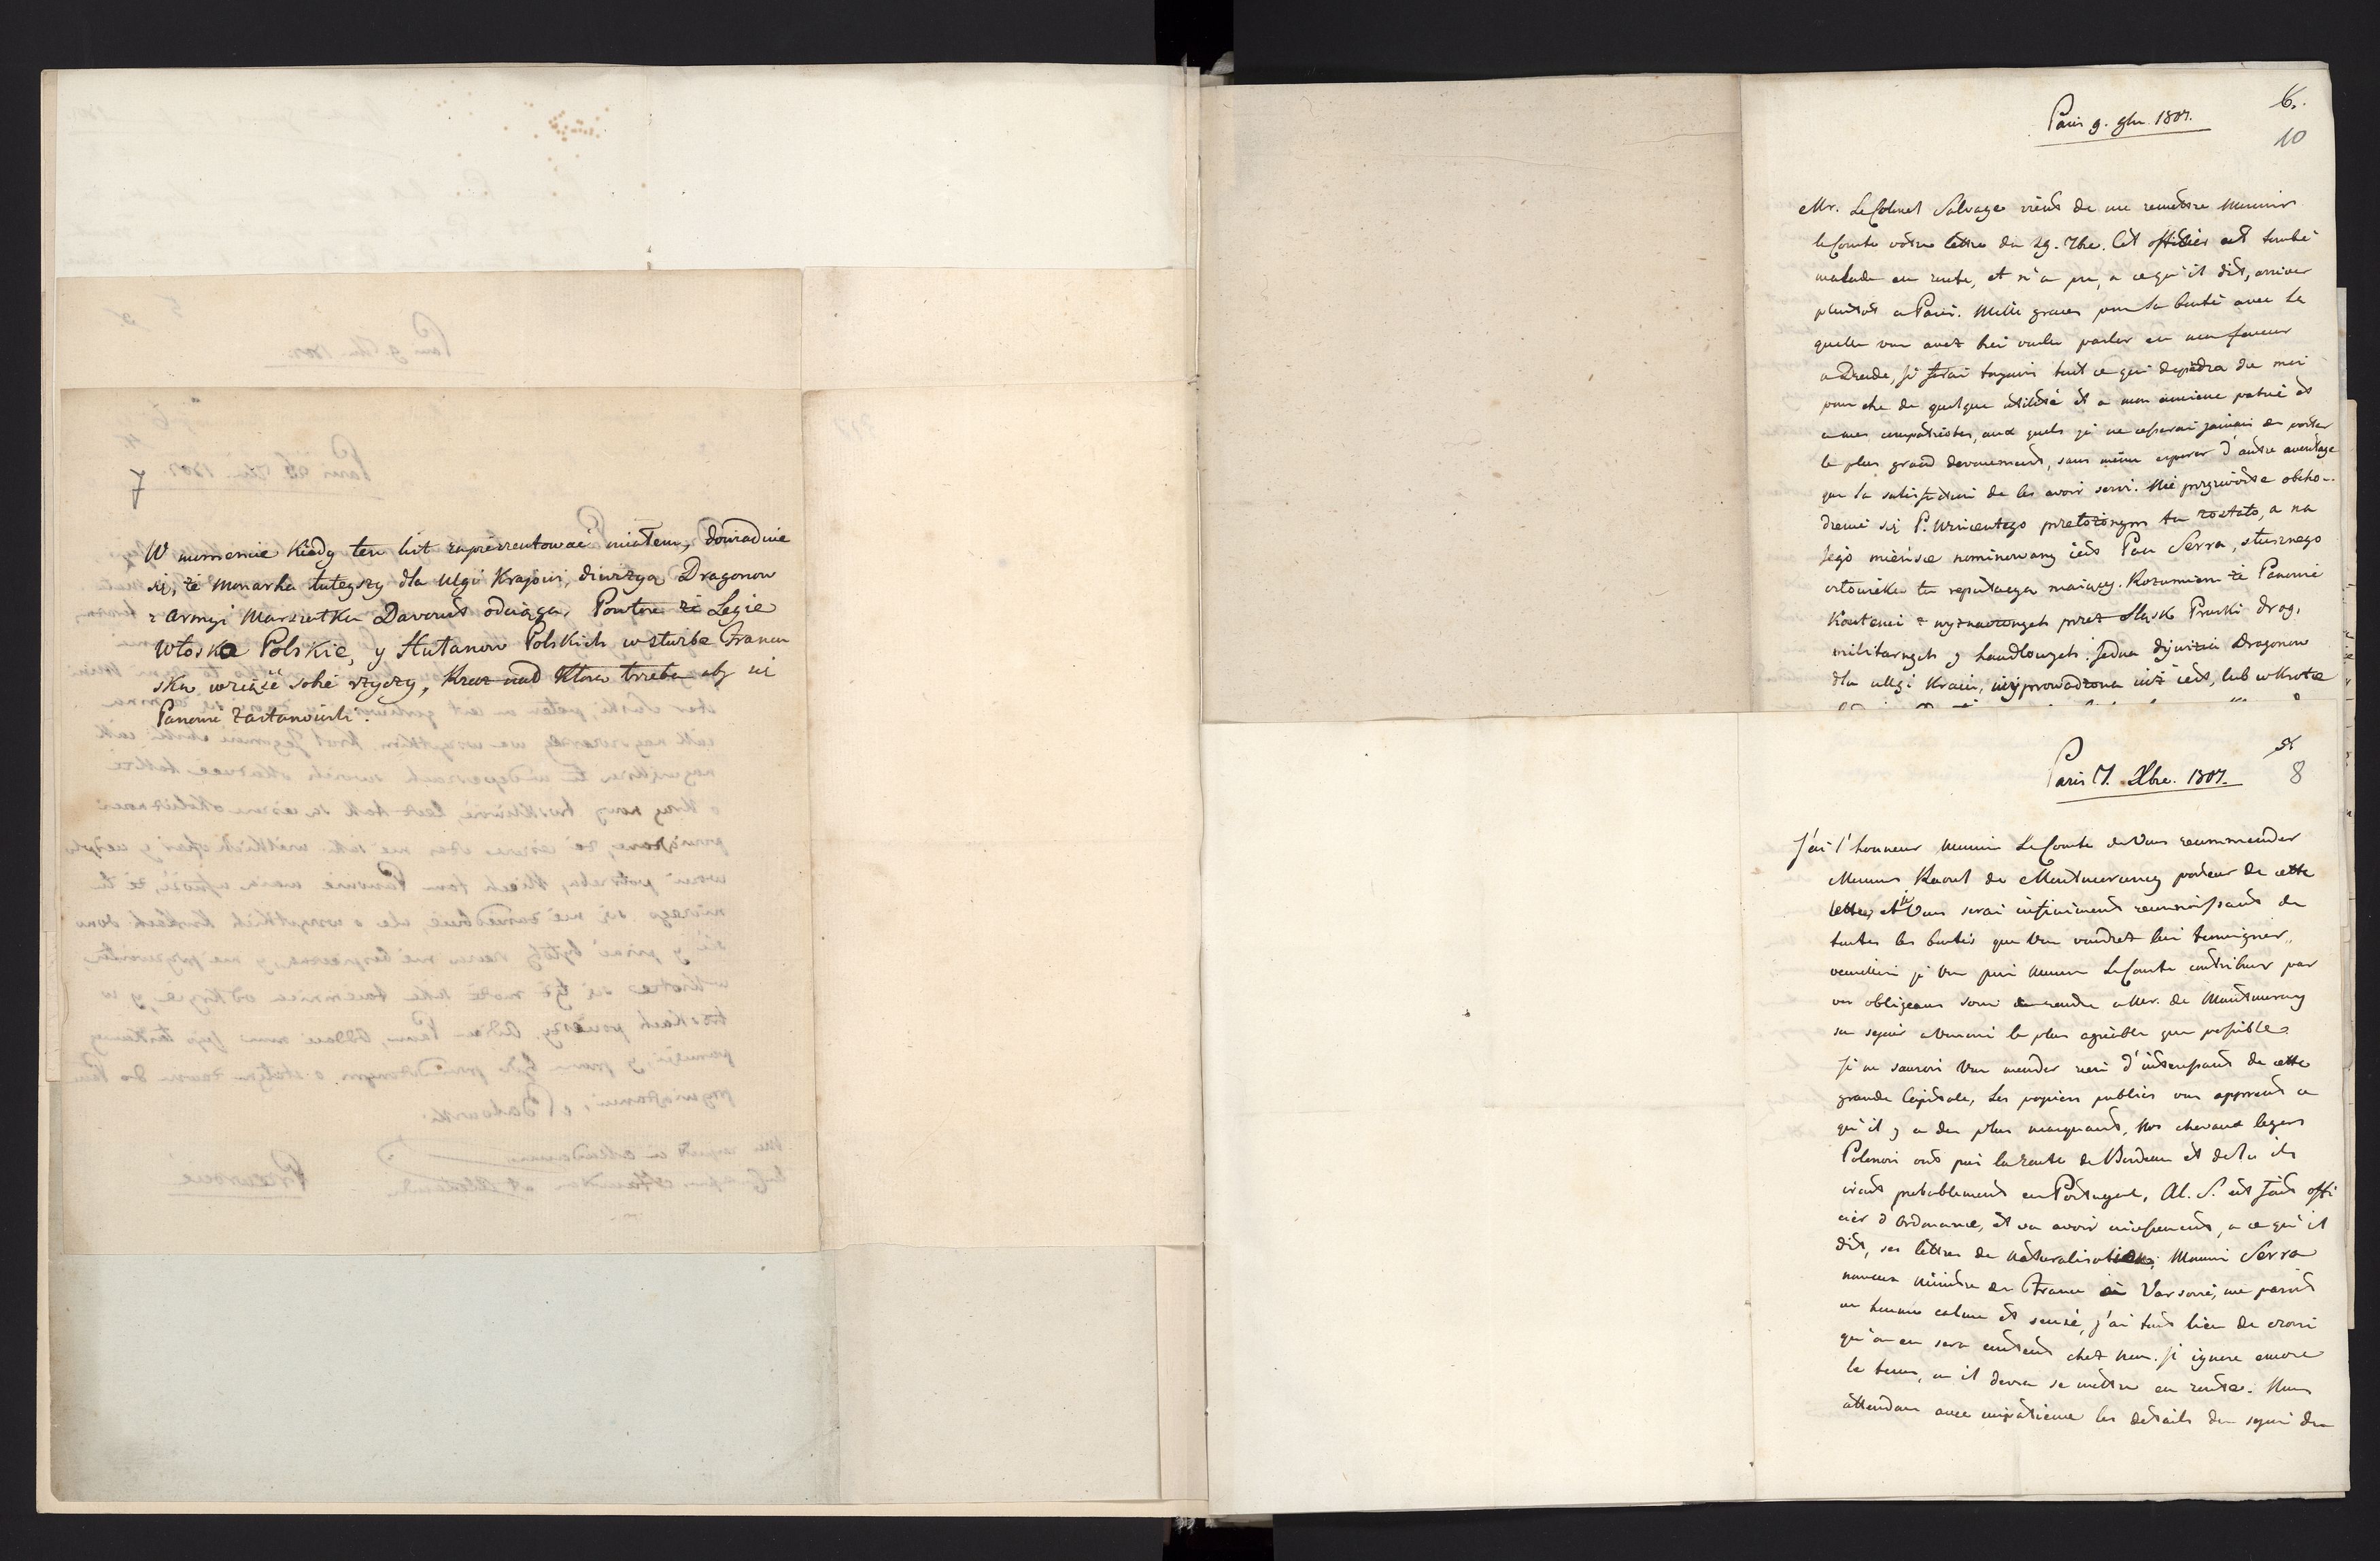 7
W momencie kiedy ten list zaprezentować miałem, dowiaduie
się, że Monarha tuteyszy dla ulgi Krajowi, diwizyą Dragonow
z Armyi Marszałka Davoust odciąga, Powtore że Legie
Włoską Polskie, y Hułanow Polskich w służbe Francu
ską wziąść sobie życzy, Rzecz nad ktorą trzeba aby się
Panowie zastanowili.
6.
10
Paris 9. 9bre 1807.
Mr. Le Colonel Salvage vient de me remettre Monsieur
le Comte votre lettre du 29. 7bre. Cet officier est tombé
malade en route, et n'a pu, a ce qu'il dit, arriver
plustot a Paris. Mille graces pour la bonté avec la
quelle vous avez bien voulu parler en ma faveur
a Dresde, je ferai toujours tout ce qui dependra de moi
pour etre de quelque utilité et a mon ancienne patrie et
a mes compatriotes, aux quels je ne cesserai jamais de porter
le plus grand devouement, sans meme esperer d'autre avantage
que la satisfaction de les avoir servi. Nie przyzwoite obcho-
dzenie się P. Wincentego przełożonym tu zostało, a na
Jego mieysce nominowany iest Pan Serra, słusznego
człowieka tu reputacyą maiący. Rozumiem że Panowie
kontenci z wyznaczonych przez Sląsk Pruski drog,
militarnych y handlowych. Jedna dywizia Dragonow
dla ulgi Kraiu, wyprowadzona iuż iest, lub wkrotce
8
Paris 17. Xbre. 1807.
J'ai l'honneur Monsieur Le Comte de Vous recommander
Monsieur Raoul de Montmorency porteur de cette
lettre, et Vous serai infiniment reconnoissant de
toutes les bontés que Vous voudrez lui temoigner,
veuillez je Vous prie Monsieur Le Comte contribuer par
vos obligeans soins a rendre a Mr. de Montmorency
son sejour a Varsovie le plus agréable que possible.
Je ne saurois Vous mander rien d'interessant de cette
grande Capitale, Les papiers publics vous apprenent ce
qu'il y a de plus marquant, Nos chevaux legers
Polonois ont pris la route de Bordeaux et de la ils
iront probablement en Portugal, Al. P. est fait offi
cier d'Ordonance, et va avoir incessament, a ce qu'il
dit, ses lettres de naturalisation; Monsieur Serra
nouveau Ministre de France à Varsovie, me paroit
un homme calme et sensé, j'ai tout lieu de croire
qu'on en sera content chez nous. Je ignore encore
le tems, ou il devra se mettre en route. Nous
attendons avec impatience les details du sejour du